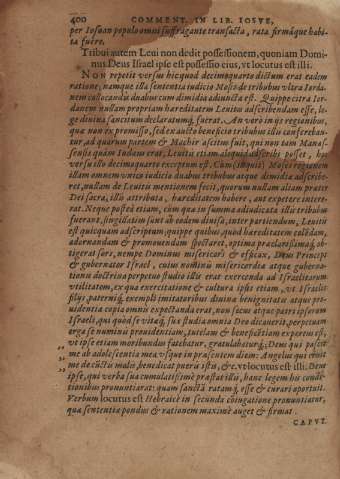 400 COMMENT. IN LIB. IOSVE,
per Iosuam populo omni suffragante transacta, rata firmaque habi-
ta fuere.
Tribui autem Leui non dedit possessionem, quoniam Domi-
nus Deus Israel ipse est possessio eius, vt locutus est illi.
NON repetit versus hic quod decimoquarto dictum erat eadem
ratione, namque illa sententia iudicio Mosis de tribubus vltra Iorda-
nem collocandis duabus cum dimidia adiuncta est. Quippe citra Ior-
danem nullam propriam hæreditatem Leuitis adscribendam esse, le-
ge diuina sancitum declaratumq́ fuerat. An verò in ijs regionibus,
quæ non ex promisso, sed ex aucto beneficio tribubus illis confereban-
tur, ad quarum partem & Machir ascitus fuit, qui non tam Manas-
sensis quàm Iudæus erat, Leuitis etiam adscribi posset, hoc
versu illo decimoquarto exceptum est. Cùm Moses regionem
illam omnem vnico iudicio duabus tribubus atque dimidiæ adscribe-
ret, nullam de Leuitis mentionem fecit, quorum nullam aliam præter
Dei sacra, illis attributa, hæreditatem habere, aut expetere intere-
rat. Neque postea etiam, cùm qua in summa adiudicata illis tribubus
fuerant, singillatim sunt ab eodem diuisa, inter partiendum, Leuitis
est quicquam adscriptum; quippe quibus, quod hæreditatem colēdam,
adornandam & promouendam spectaret, optima præclarissimaq́; ob-
tigerat sors, nempe Dominus misericors & efficax, Deus Princeps
& gubernator Israel, cuius nominis misericordia atque guberna-
tionis doctrina perpetuo studio illis erat exercenda ad Israelitarum
vtilitatem, ex qua exercitatione & cultura ipsis etiam, vt Israelit-
is, paternisq́; exempli imitatoribus diuina benignitate atque pro-
uidentia copia omnis expectanda erat, non secus atque patri ipsorum
Israeli, qui quòd se vitāq́; sua studia omnia Deo dicauerit, perpetuam
erga se numinis prouidentiam, tutelam & beneficentiam expertus est,
vt ipse etiam moribundus fatebatur, gratulabaturq́;: Deus qui pascit
me ab adolescentia mea vsque in præsentem diem: Angelus qui eruit
me de cunctis malis, benedicat pueris istis, &c. vt locutus est illi. Deus
ipse, qui verba sua cumulatissimè præstat illis, hanc legem his condi-
tionibus pronuntiarat: quam sanctā ratamq́; esse & curari oportuit.
Verbum locutus est Hebraicè in secunda coniugatione pronuntiatur,
quæ sententia pondus & rationem maximè auget & firmat.
CAPVT